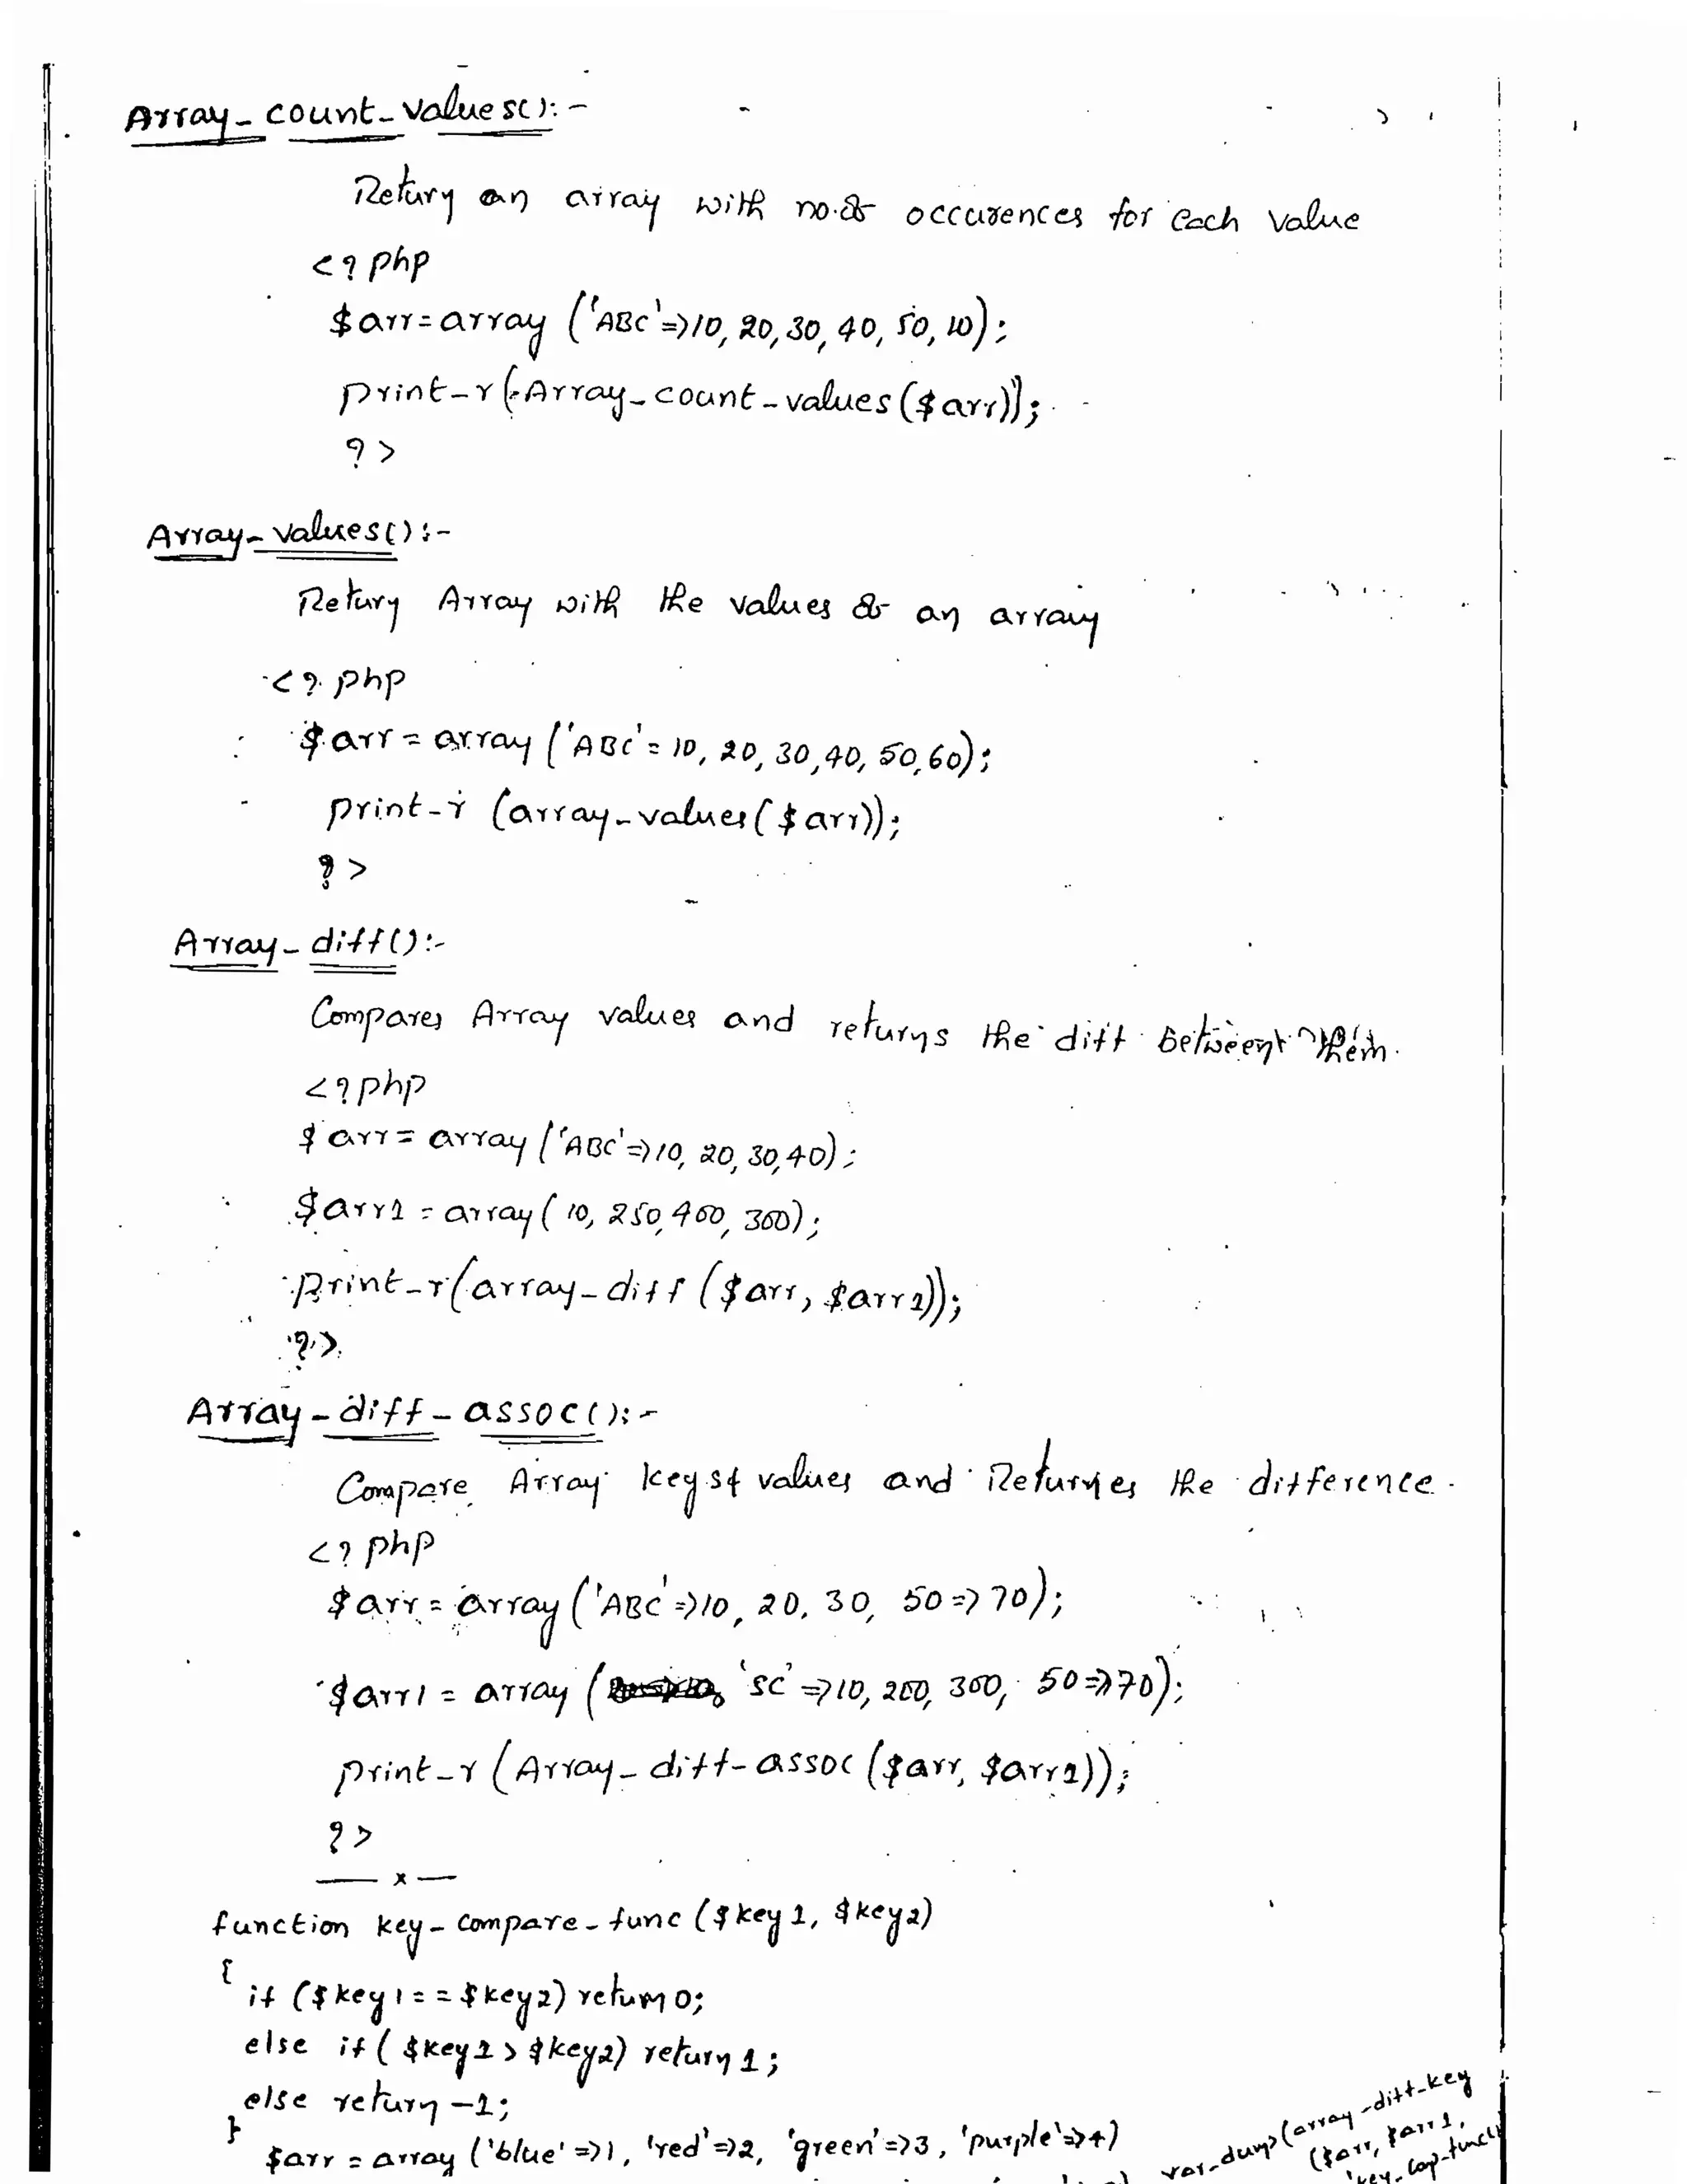 Array_count_values():-
Return an array with no.of occurences for each value
<?php
$arr=array ('ABC'=>10, 20, 30, 40, 50, 10);
print_r(Array_count_values($arr));
?>
Array_values():-
Return Array with the values of an array
<?php
$arr = array ('ABC' = 10, 20, 30, 40, 50, 60);
print_r (array_values($arr));
?>
Array_diff():-
Compares Array values and returns the diff between them.
<?php
$arr = array ('ABC'=>10, 20, 30, 40);
$arr1 = array( 10, 250, 400, 300);
print_r(array_diff ($arr, $arr1));
?>
Array_diff_assoc():-
Compare Array keys & values and Returnes the difference.
<?php
$arr = array ('ABC'=>10, 20, 30, 50=>70);
$arr1 = array ( 'SC' =>10, 200, 300, 50=>70);
print_r (Array_diff-assoc ($arr, $arr1));
?>
— x —
function key_compare_func ($key1, $key2)
{
if ($key1 == $key2) return 0;
else if ( $key1 > $key2) return 1;
else return -1;
}
$arr = array ('blue' =>1, 'red'=>2, 'green'=>3, 'purple'=>4)
var_dump(array_diff_key
($arr, $arr1,